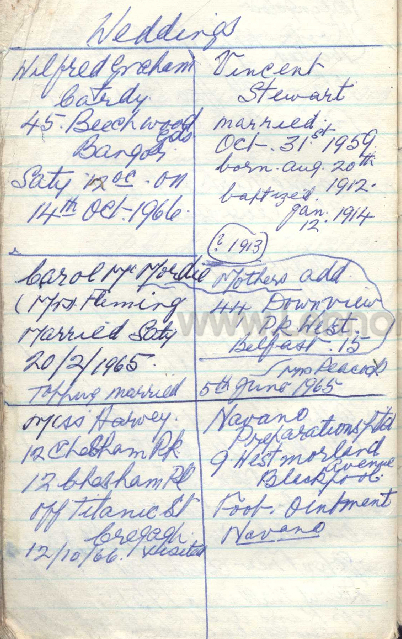 Weddings
Wilfred Graham
Cardy
45. Beechwood
Gds
Bangor
Saty 12 oc. on
14th Oct. 1966.
Vincent
Stewart
married.
Oct. 31st 1959.
born. aug. 20th
1912.
baptized.
Jan. 1914
12.
(? 1913)
Carol Mc Mordie
(Mrs) Fleming
Married Saty
20/2/1965.
Topping married
5th June 1965
Mothers add.
44 Downview
Pk West.
Belfast 15
Mrs Peacock
Miss Harvey.
12 Chesham Pk
12 Chesham Pl
off Titanic St
Cregagh.
12/10/66. visited
Navano
Preparations Ltd
9 Westmorland
Avenue
Blackpool.
Foot. Ointment
Navano